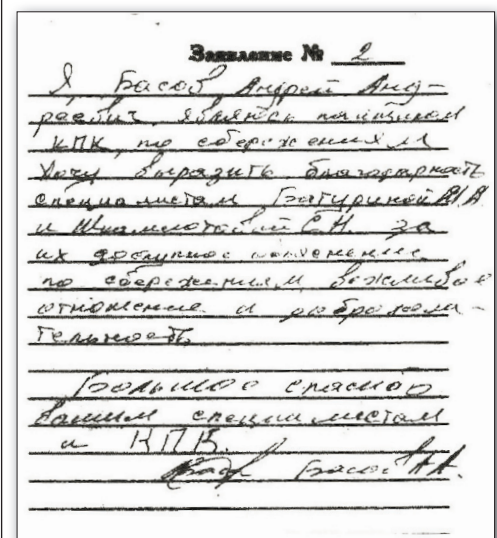 Заявление № 2
Я, Басов Андрей Анд-
реевич, являюсь пайщиком
КПК, по сбережениям
Хочу выразить благодарность
специалистам Батуриной
и С.Н. за
их доступное пояснение
по сбережениям, вежливое
отношение и доброжела-
тельность
Большое спасибо
вашим специалистам
и КПК.
Басов А.А.